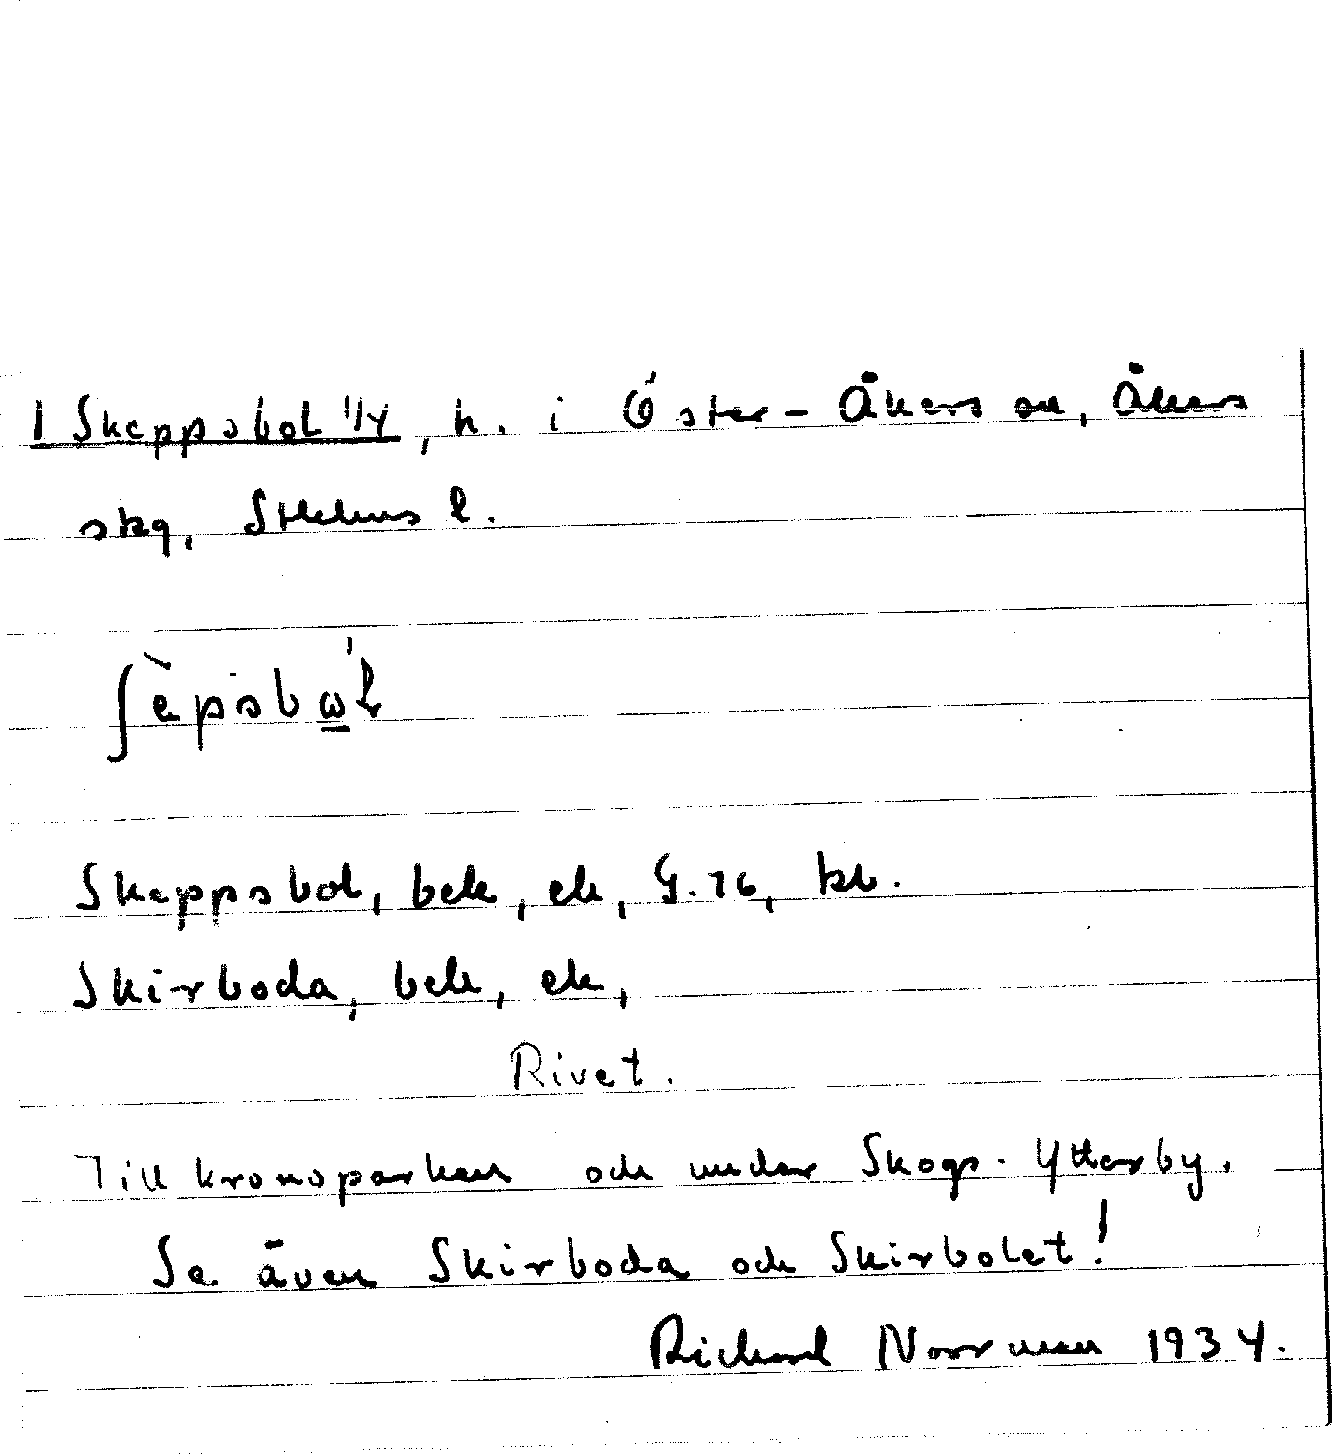 1 Skeppsbol 1/4, h. i Öster-Åkers sn, Åkers
skg, Sthlms l.
ʃèpsbω̲'ɫ
Skeppsbol, bek, ek, G.76, kb.
Skirboda, bek, ek,
Rivet.
Till kronoparken och under Skogs-Ytterby.
Se även Skirboda och Skirbolet!
Richard Norrman 1934.